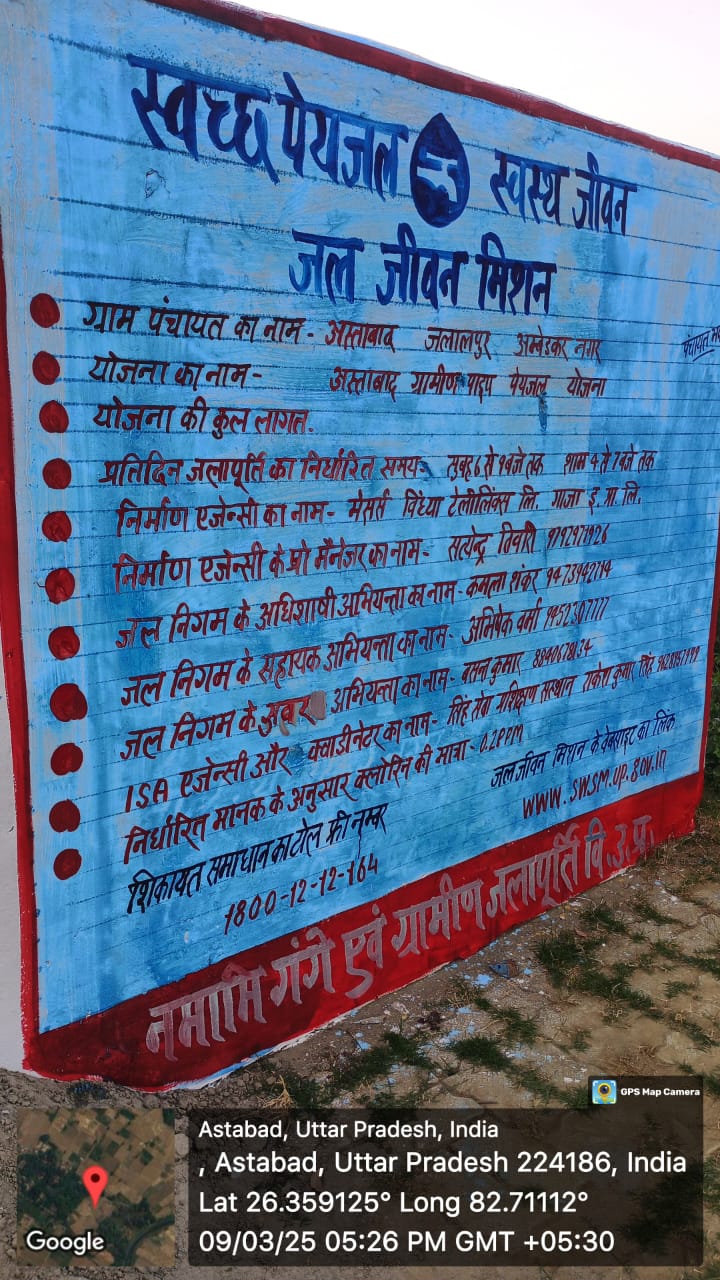 स्वच्छ पेयजल स्वस्थ जीवन
जल जीवन मिशन
ग्राम पंचायत का नाम- अस्ताबाद जलालपुर अम्बेडकर नगर
पंचायत
योजना का नाम- अस्ताबाद ग्रामीण पाइप पेयजल योजना
योजना की कुल लागत.
प्रतिदिन जलापूर्ति का निर्धारित समय- सुबह 6 से 9 बजे तक शाम 4 से 7 बजे तक
निर्माण एजेन्सी का नाम- मेसर्स विंध्या टेलीलिंक्स लि. गाजा इ. प्रा. लि.
निर्माण एजेन्सी के प्रो मैनेजर का नाम- सत्येन्द्र तिवारी 9792971926
जल निगम के अधिशाषी अभियन्ता का नाम- कमला शंकर 9473942714
जल निगम के सहायक अभियन्ता का नाम- अभिषेक वर्मा 9452307777
जल निगम के अवर अभियन्ता का नाम- बसन्त कुमार 8840678134
ISA एजेन्सी और क्वाडीनेटर का नाम- सिंह सेवा प्रशिक्षण संस्थान राकेश कुमार सिंह
निर्धारित मानक के अनुसार क्लोरिन की मात्रा- 0.2PPM
शिकायत समाधान का टोल फ्री नम्बर
1800-12-12-164
जल जीवन मिशन के वेबसाइट का लिंक
www.swsm.up.gov.in
नमामि गंगे एवं ग्रामीण जलापूर्ति वि. उ. प्र.
GPS Map Camera
Astabad, Uttar Pradesh, India
, Astabad, Uttar Pradesh 224186, India
Lat 26.359125° Long 82.71112°
09/03/25 05:26 PM GMT +05:30
Google